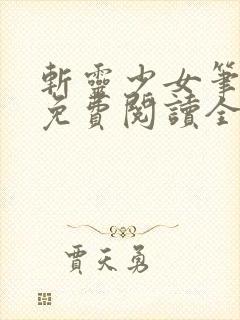 斬靈少女筆
免費閱讀全
賈天勇